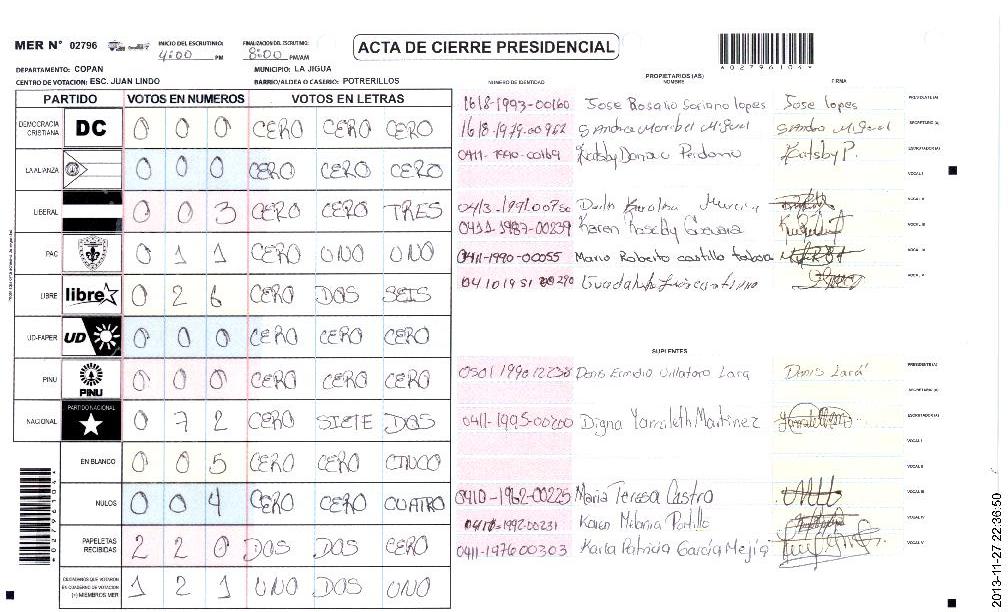 MER N° 02796 INICIO DEL ESCRUTINIO: 4:00 PM FINALIZACION DEL ESCRUTINIO: 8:00 PM/AM ACTA DE CIERRE PRESIDENCIAL
*02796104*
DEPARTAMENTO: COPAN MUNICIPIO: LA JIGUA
CENTRO DE VOTACION: ESC. JUAN LINDO BARRIO/ALDEA O CASERIO: POTRERILLOS
PARTIDO VOTOS EN NUMEROS VOTOS EN LETRAS
DEMOCRACIA CRISTIANA DC 0 0 0 CERO CERO CERO
LA ALIANZA 0 0 0 CERO CERO CERO
LIBERAL 0 0 3 CERO CERO TRES
PAC 0 1 1 CERO UNO UNO
LIBRE libre 0 2 6 CERO DOS SEIS
UD-FAPER UD 0 0 0 CERO CERO CERO
PINU PINU 0 0 0 CERO CERO CERO
NACIONAL PARTIDO NACIONAL 0 7 2 CERO SIETE DOS
EN BLANCO 0 0 5 CERO CERO CINCO
NULOS 0 0 4 CERO CERO CUATRO
PAPELETAS RECIBIDAS 2 2 0 DOS DOS CERO
CIUDADANOS QUE VOTARON EN CUADERNO DE VOTACION (+) MIEMBROS MER 1 2 1 UNO DOS UNO
*02796104*
PROPIETARIOS (AS)
NUMERO DE IDENTIDAD NOMBRE FIRMA
1618-1993-00160 Jose Rosalio Soriano lopes Jose lopes PRESIDENTE (A)
1618-1979-00962 Sandra Maribel Miguel Sandra Miguel SECRETARIO (A)
0411-1990-00169 Katsby Perdomo Katsby P. ESCRUTADOR (A)
VOCAL I
0413-1991-00750 Karolina Murcia VOCAL II
0411-1987-00239 Karen Roseby Guevara VOCAL III
0411-1990-00055 Mario Roberto castillo VOCAL IV
0410 1951 00290 VOCAL V
SUPLENTES
0501 1990 12238 Denis Ermidio Villatoro Lara Denis Lara PRESIDENTE (A)
SECRETARIO (A)
0411-1995-00200 Digna Yamileth Martinez ESCRUTADOR (A)
VOCAL I
VOCAL II
0410-1962-00225 Maria Teresa Castro VOCAL III
0410-1992-00231 Karen Milania Portillo VOCAL IV
0411-1976 00303 Karla Patricia Garcia Mejia VOCAL V
2013-11-27 22:36:50